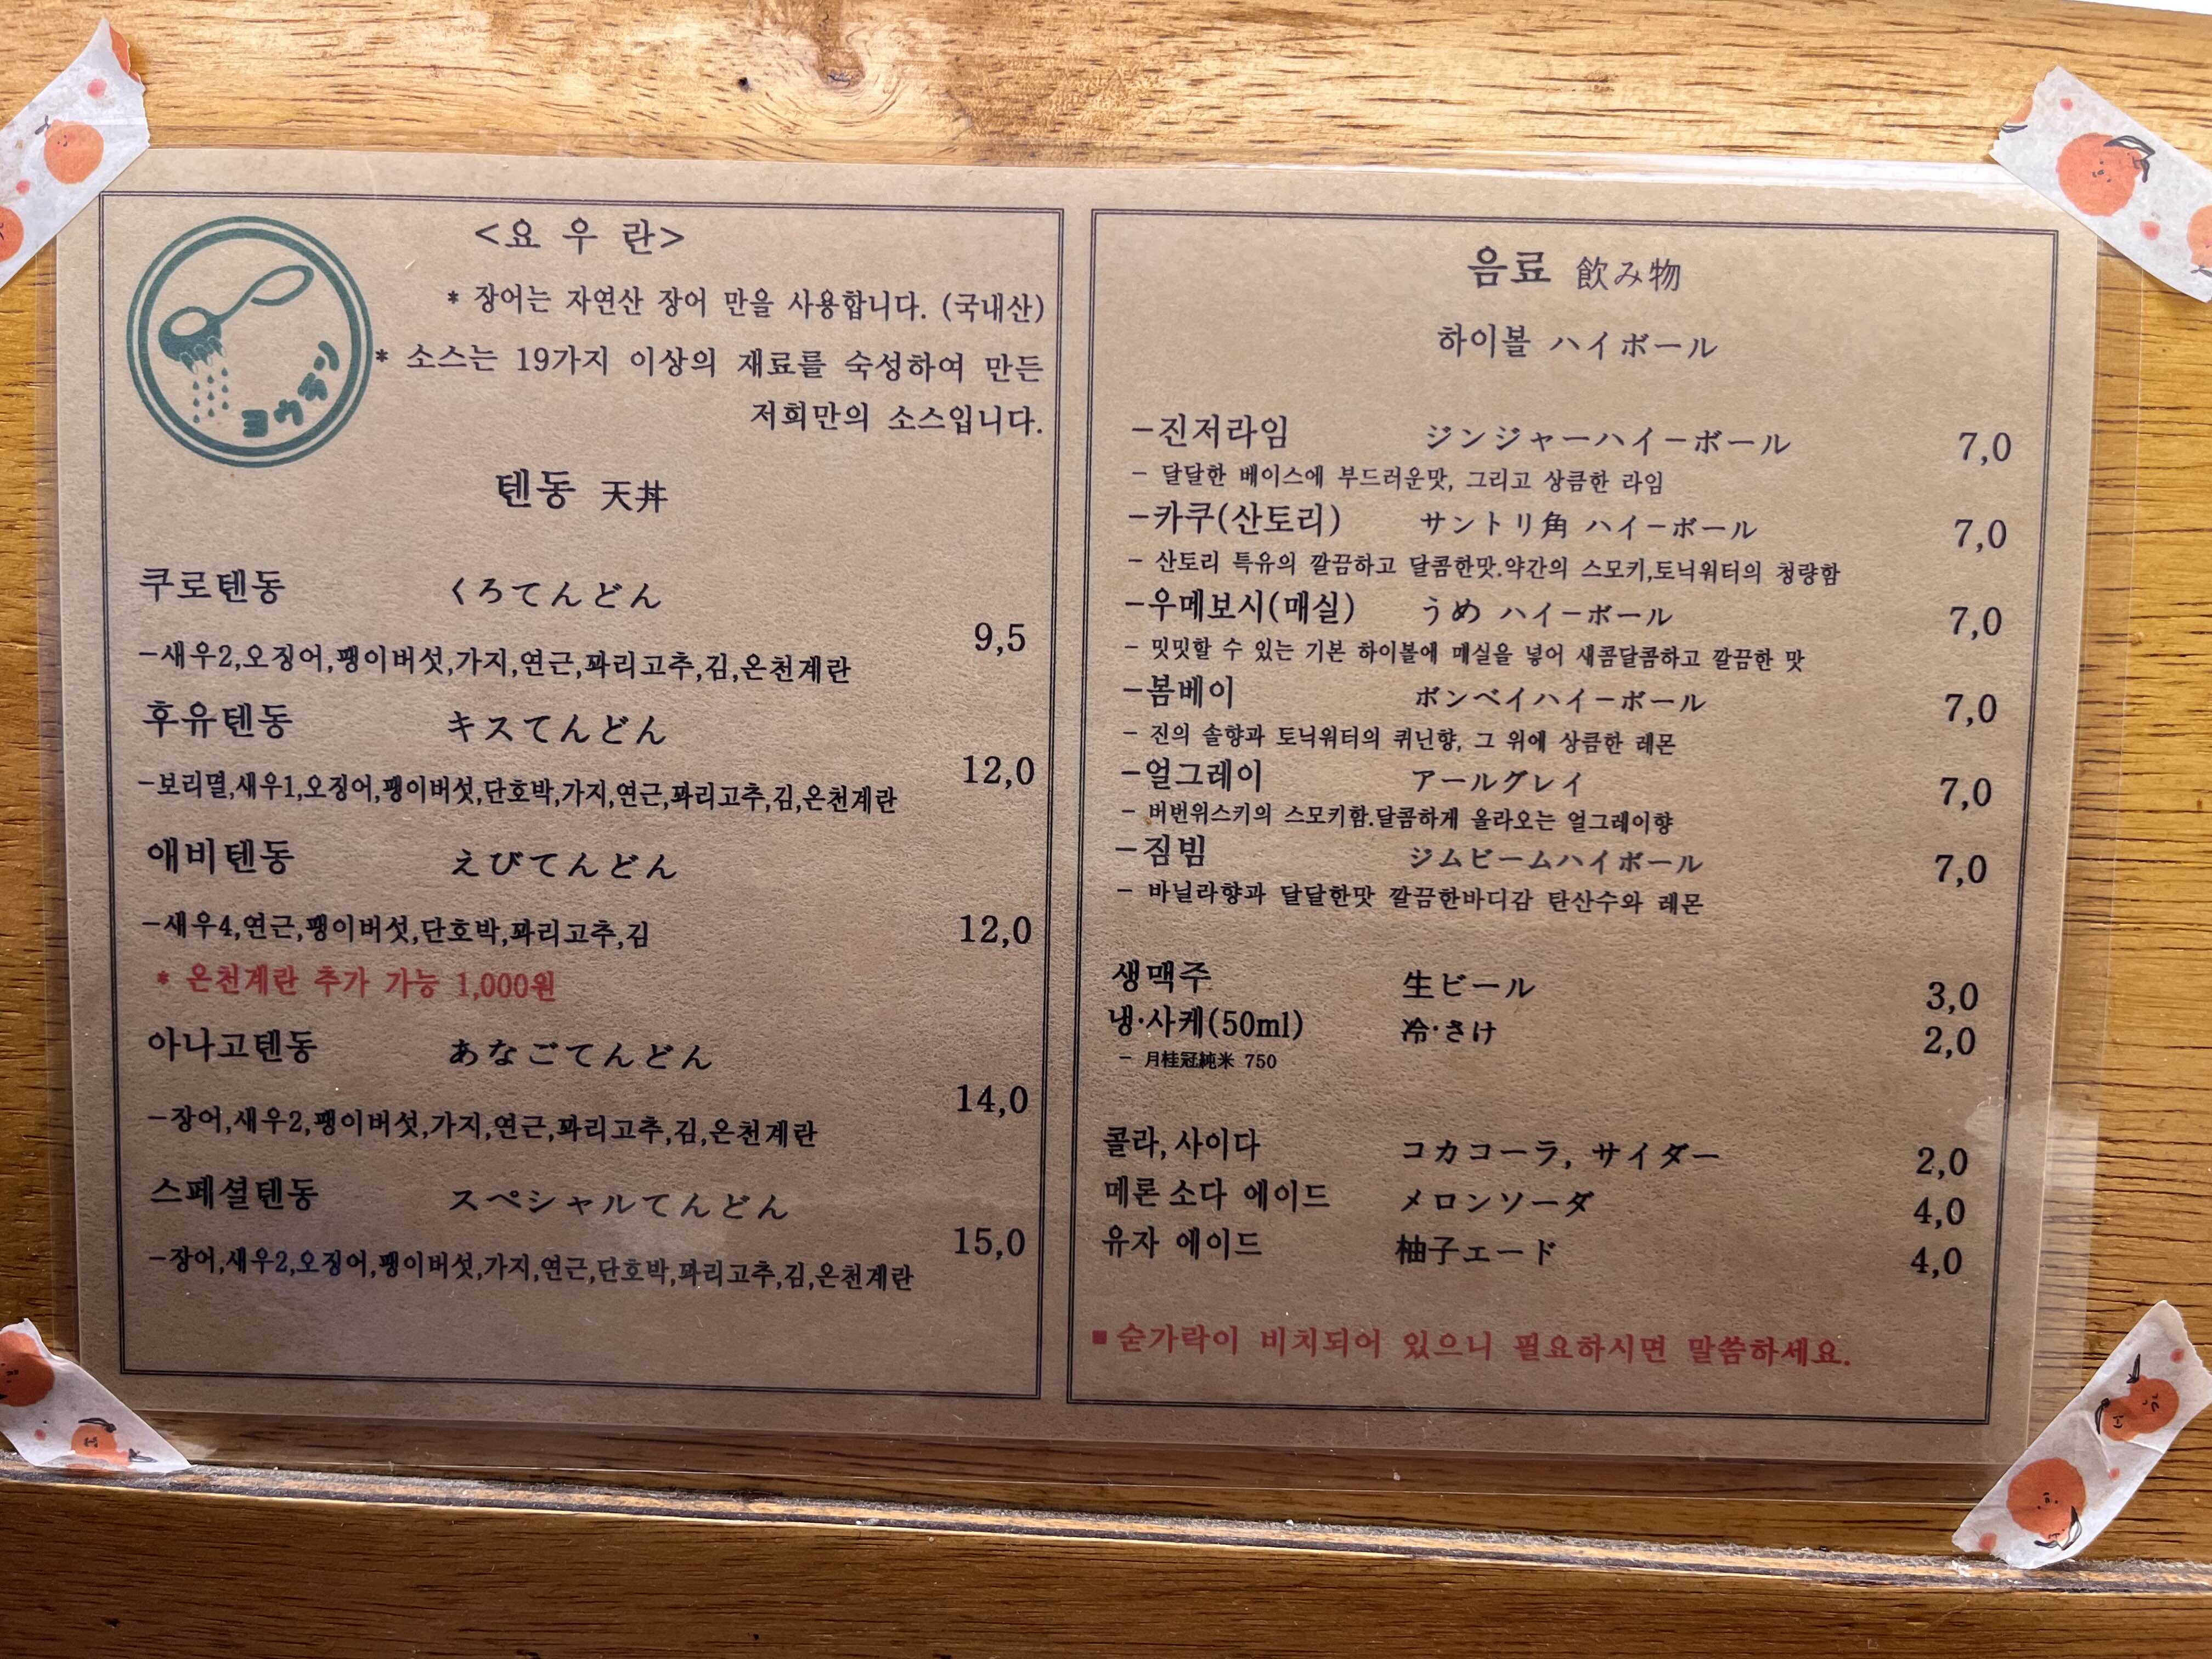 ヨウラン
<요 우 란>
* 장어는 자연산 장어 만을 사용합니다. (국내산)
* 소스는 19가지 이상의 재료를 숙성하여 만든
저희만의 소스입니다.
텐동 天丼
쿠로텐동 くろてんどん
9,5
-새우2,오징어,팽이버섯,가지,연근,꽈리고추,김,온천계란
후유텐동 キスてんどん
12,0
-보리멸,새우1,오징어,팽이버섯,단호박,가지,연근,꽈리고추,김,온천계란
애비텐동 えびてんどん
-새우4,연근,팽이버섯,단호박,꽈리고추,김 12,0
* 온천계란 추가 가능 1,000원
아나고텐동 あなごてんどん
14,0
-장어,새우2,팽이버섯,가지,연근,꽈리고추,김,온천계란
스페셜텐동 スペシャルてんどん
15,0
-장어,새우2,오징어,팽이버섯,가지,연근,단호박,꽈리고추,김,온천계란
음료 飲み物
하이볼 ハイボール
-진저라임 ジンジャーハイーボール 7,0
- 달달한 베이스에 부드러운맛, 그리고 상큼한 라임
-카쿠(산토리) サントリ角 ハイーボール 7,0
- 산토리 특유의 깔끔하고 달콤한맛.약간의 스모키,토닉워터의 청량함
-우메보시(매실) うめ ハイーボール 7,0
- 밋밋할 수 있는 기본 하이볼에 매실을 넣어 새콤달콤하고 깔끔한 맛
-봄베이 ボンベイハイーボール 7,0
- 진의 솔향과 토닉워터의 퀴닌향, 그 위에 상큼한 레몬
-얼그레이 アールグレイ 7,0
- 버번위스키의 스모키함.달콤하게 올라오는 얼그레이향
-짐빔 ジムビームハイボール 7,0
- 바닐라향과 달달한맛 깔끔한바디감 탄산수와 레몬
생맥주 生ビール 3,0
냉·사케(50ml) 冷·さけ 2,0
- 月桂冠純米 750
콜라, 사이다 コカコーラ, サイダー 2,0
메론 소다 에이드 メロンソーダ 4,0
유자 에이드 柚子エード 4,0
■ 숟가락이 비치되어 있으니 필요하시면 말씀하세요.